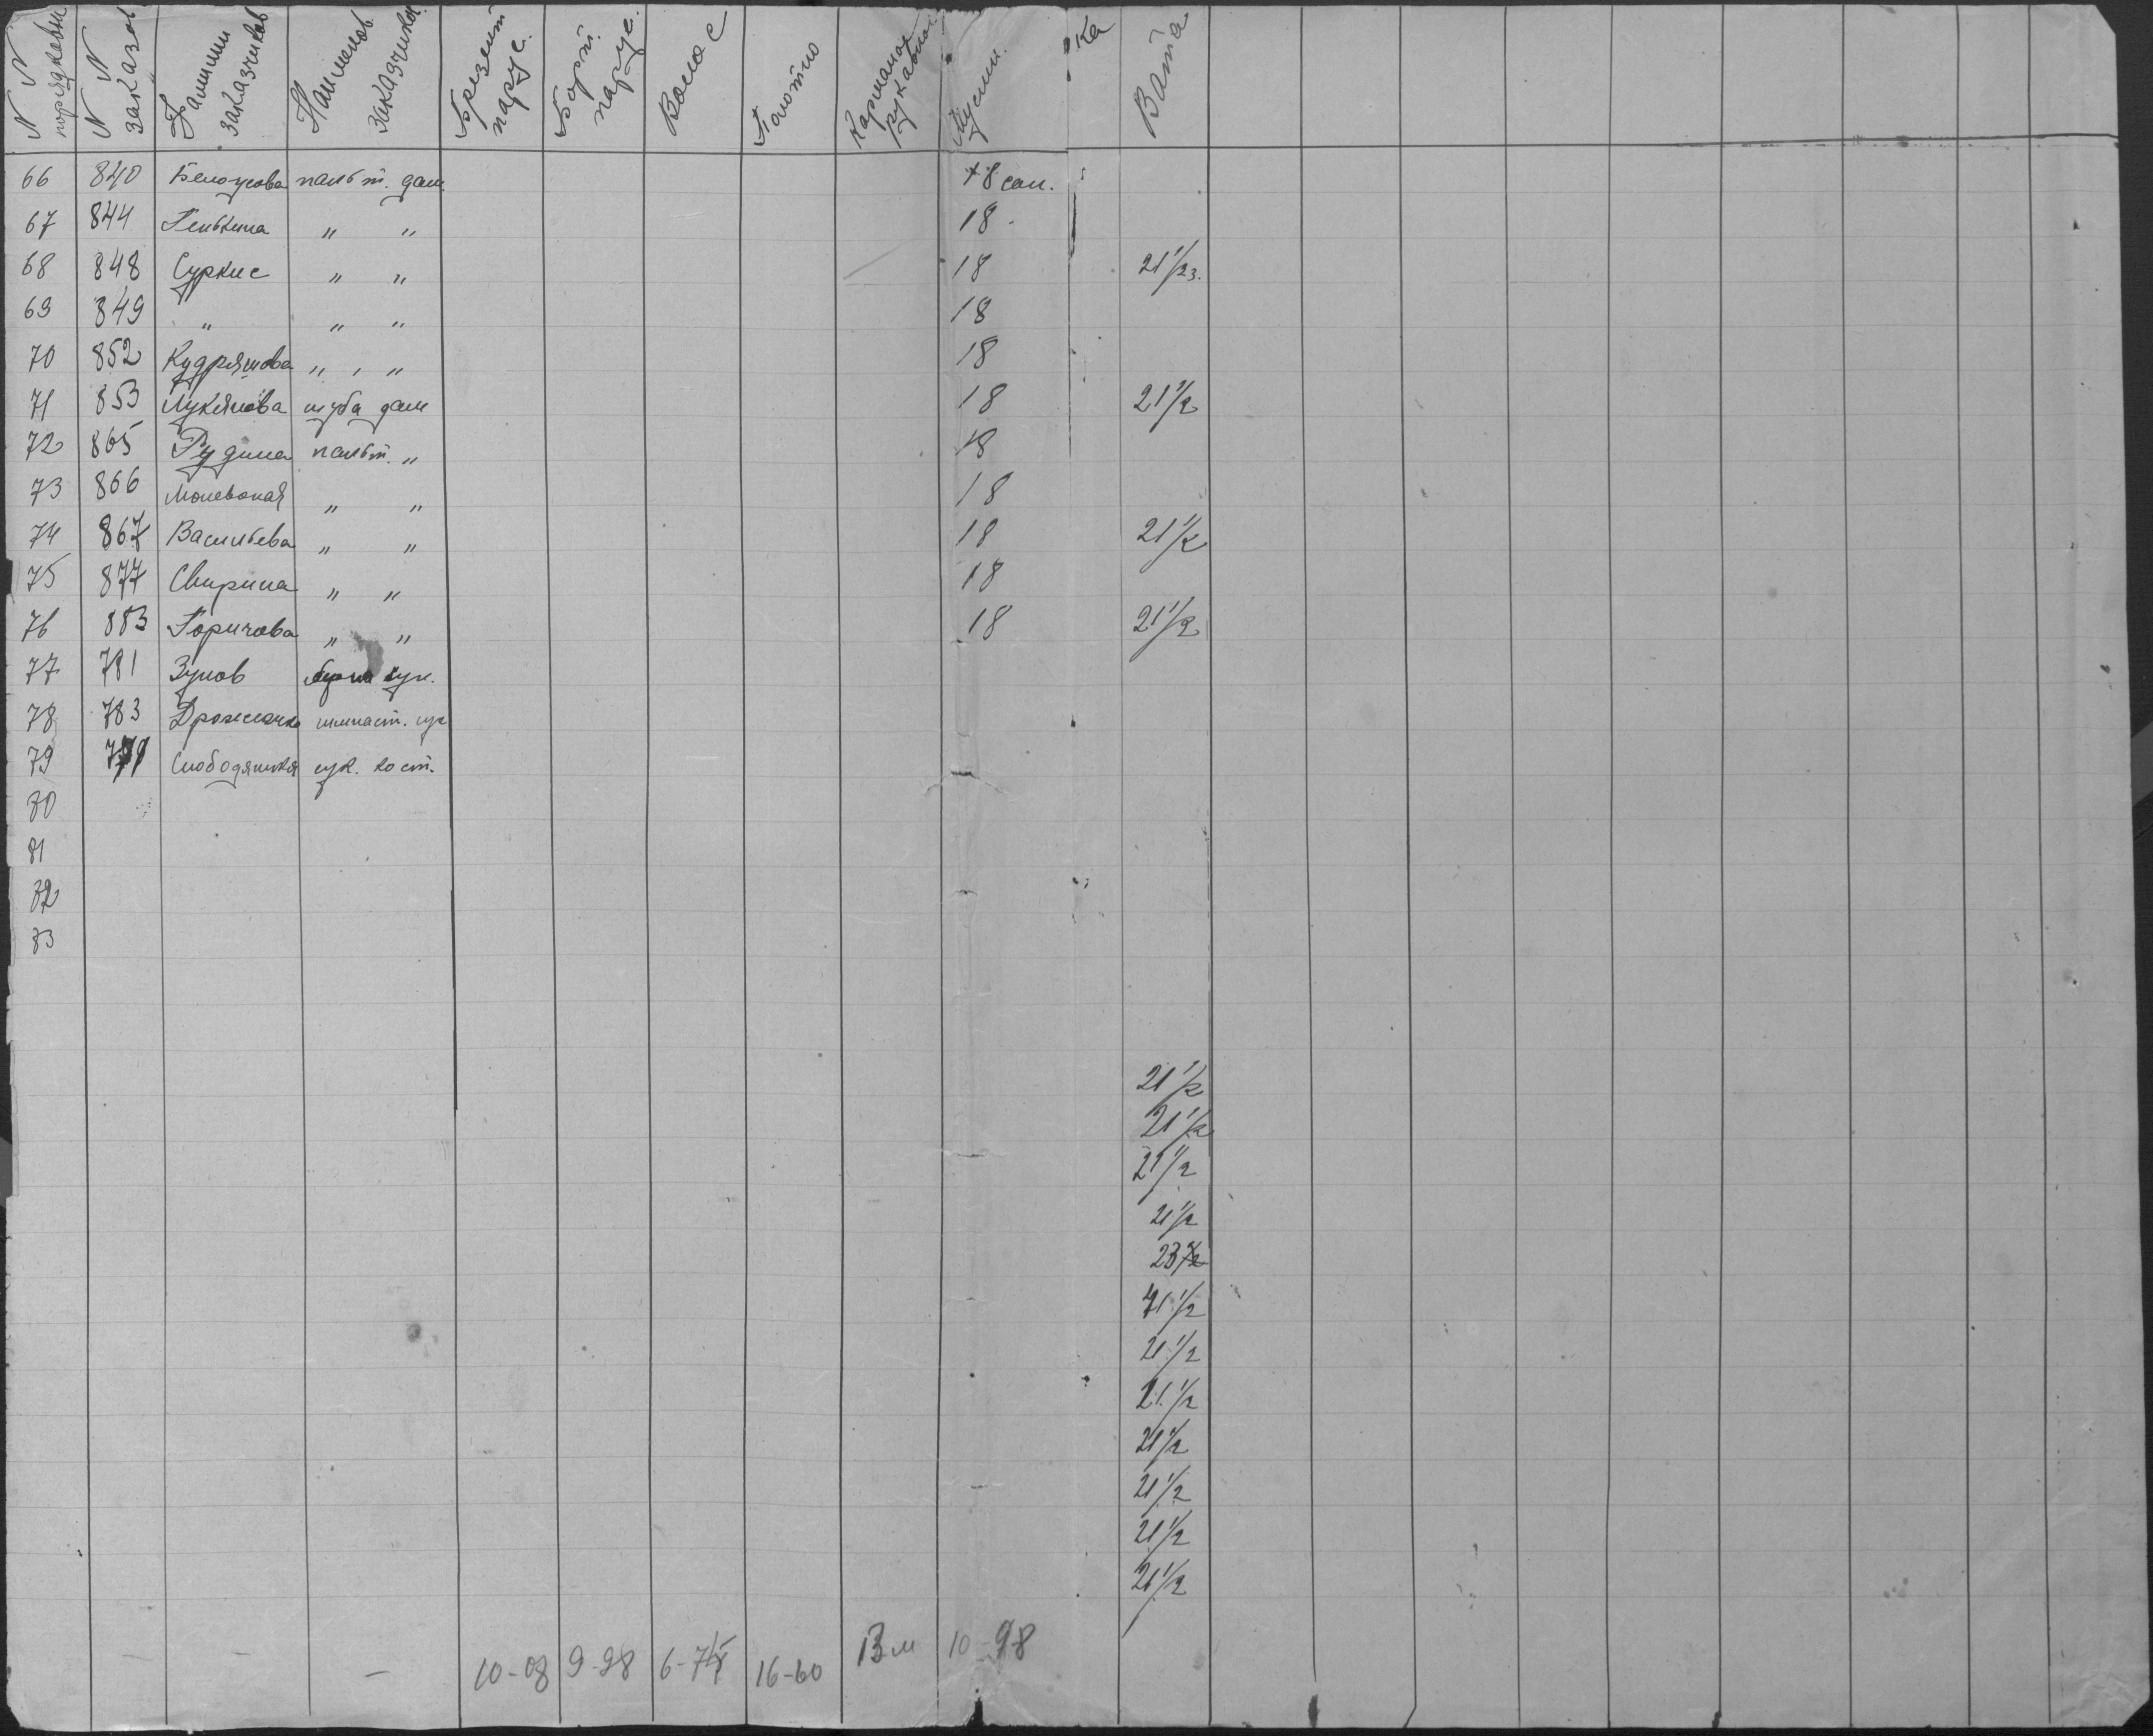 N N порядковый | N N заказов | Фамилии заказчиков | Наименов. заказчиков | Брезент парус. | Борт. парус. | Волос | Полотно | Карманол рукавная | Муслин. | ка | Вата
66 840 Белоусова пальт. дам. 18 сан.
67 844 Генькина " " 18
68 848 Суркис " " 18 21 1/2 з.
69 849 " " " 18
70 852 Кудряшова " " 18
71 853 Лукянова шуба дам 18 21 1/2
72 865 Рудина пальт. " 18
73 866 " " 18
74 867 Васильева " " 18 21 1/2
75 877 Свирина " " 18
76 883 Горичова " " 18 21 1/2
77 781 Зуков сук.
78 783 гимнаст. сук
79 Слободянская сук. кост.
80
81
82
83
21 1/2
21 1/2
21 1/2
21 1/2
23
21 1/2
21 1/2
21 1/2
21 1/2
21 1/2
21 1/2
21 1/2
10-08 9-98 6-75 16-60 13 м 10-98